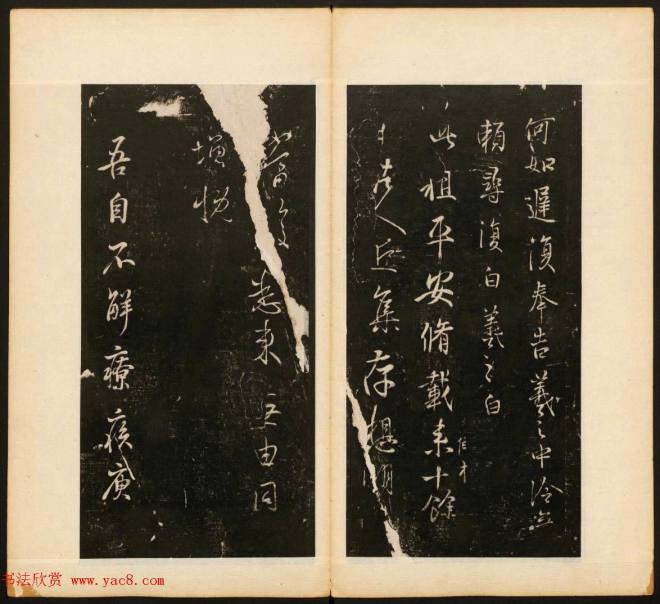 何如遲復奉告羲之中冷無
賴尋復白羲之白
此粗平安脩載來十餘
日諸人近集存想明
當復悉來無由同
增慨
吾自不解療疾
书法欣赏 www.yac8.com